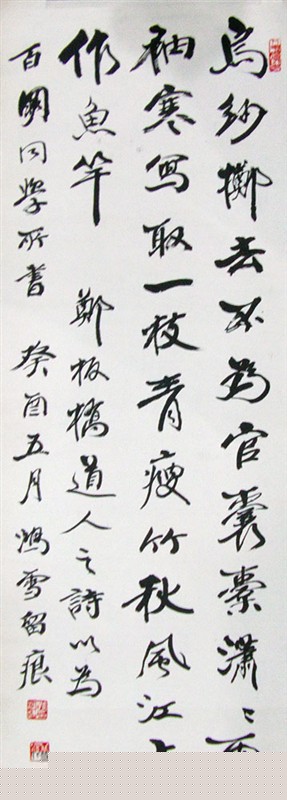 烏紗擲去不為官囊橐瀟〻兩
袖寒寫取一枝青瘦竹秋風江上
作魚竿 鄭板橋道人之詩以為
百剛同學所書 癸酉五月 鴻雪留痕